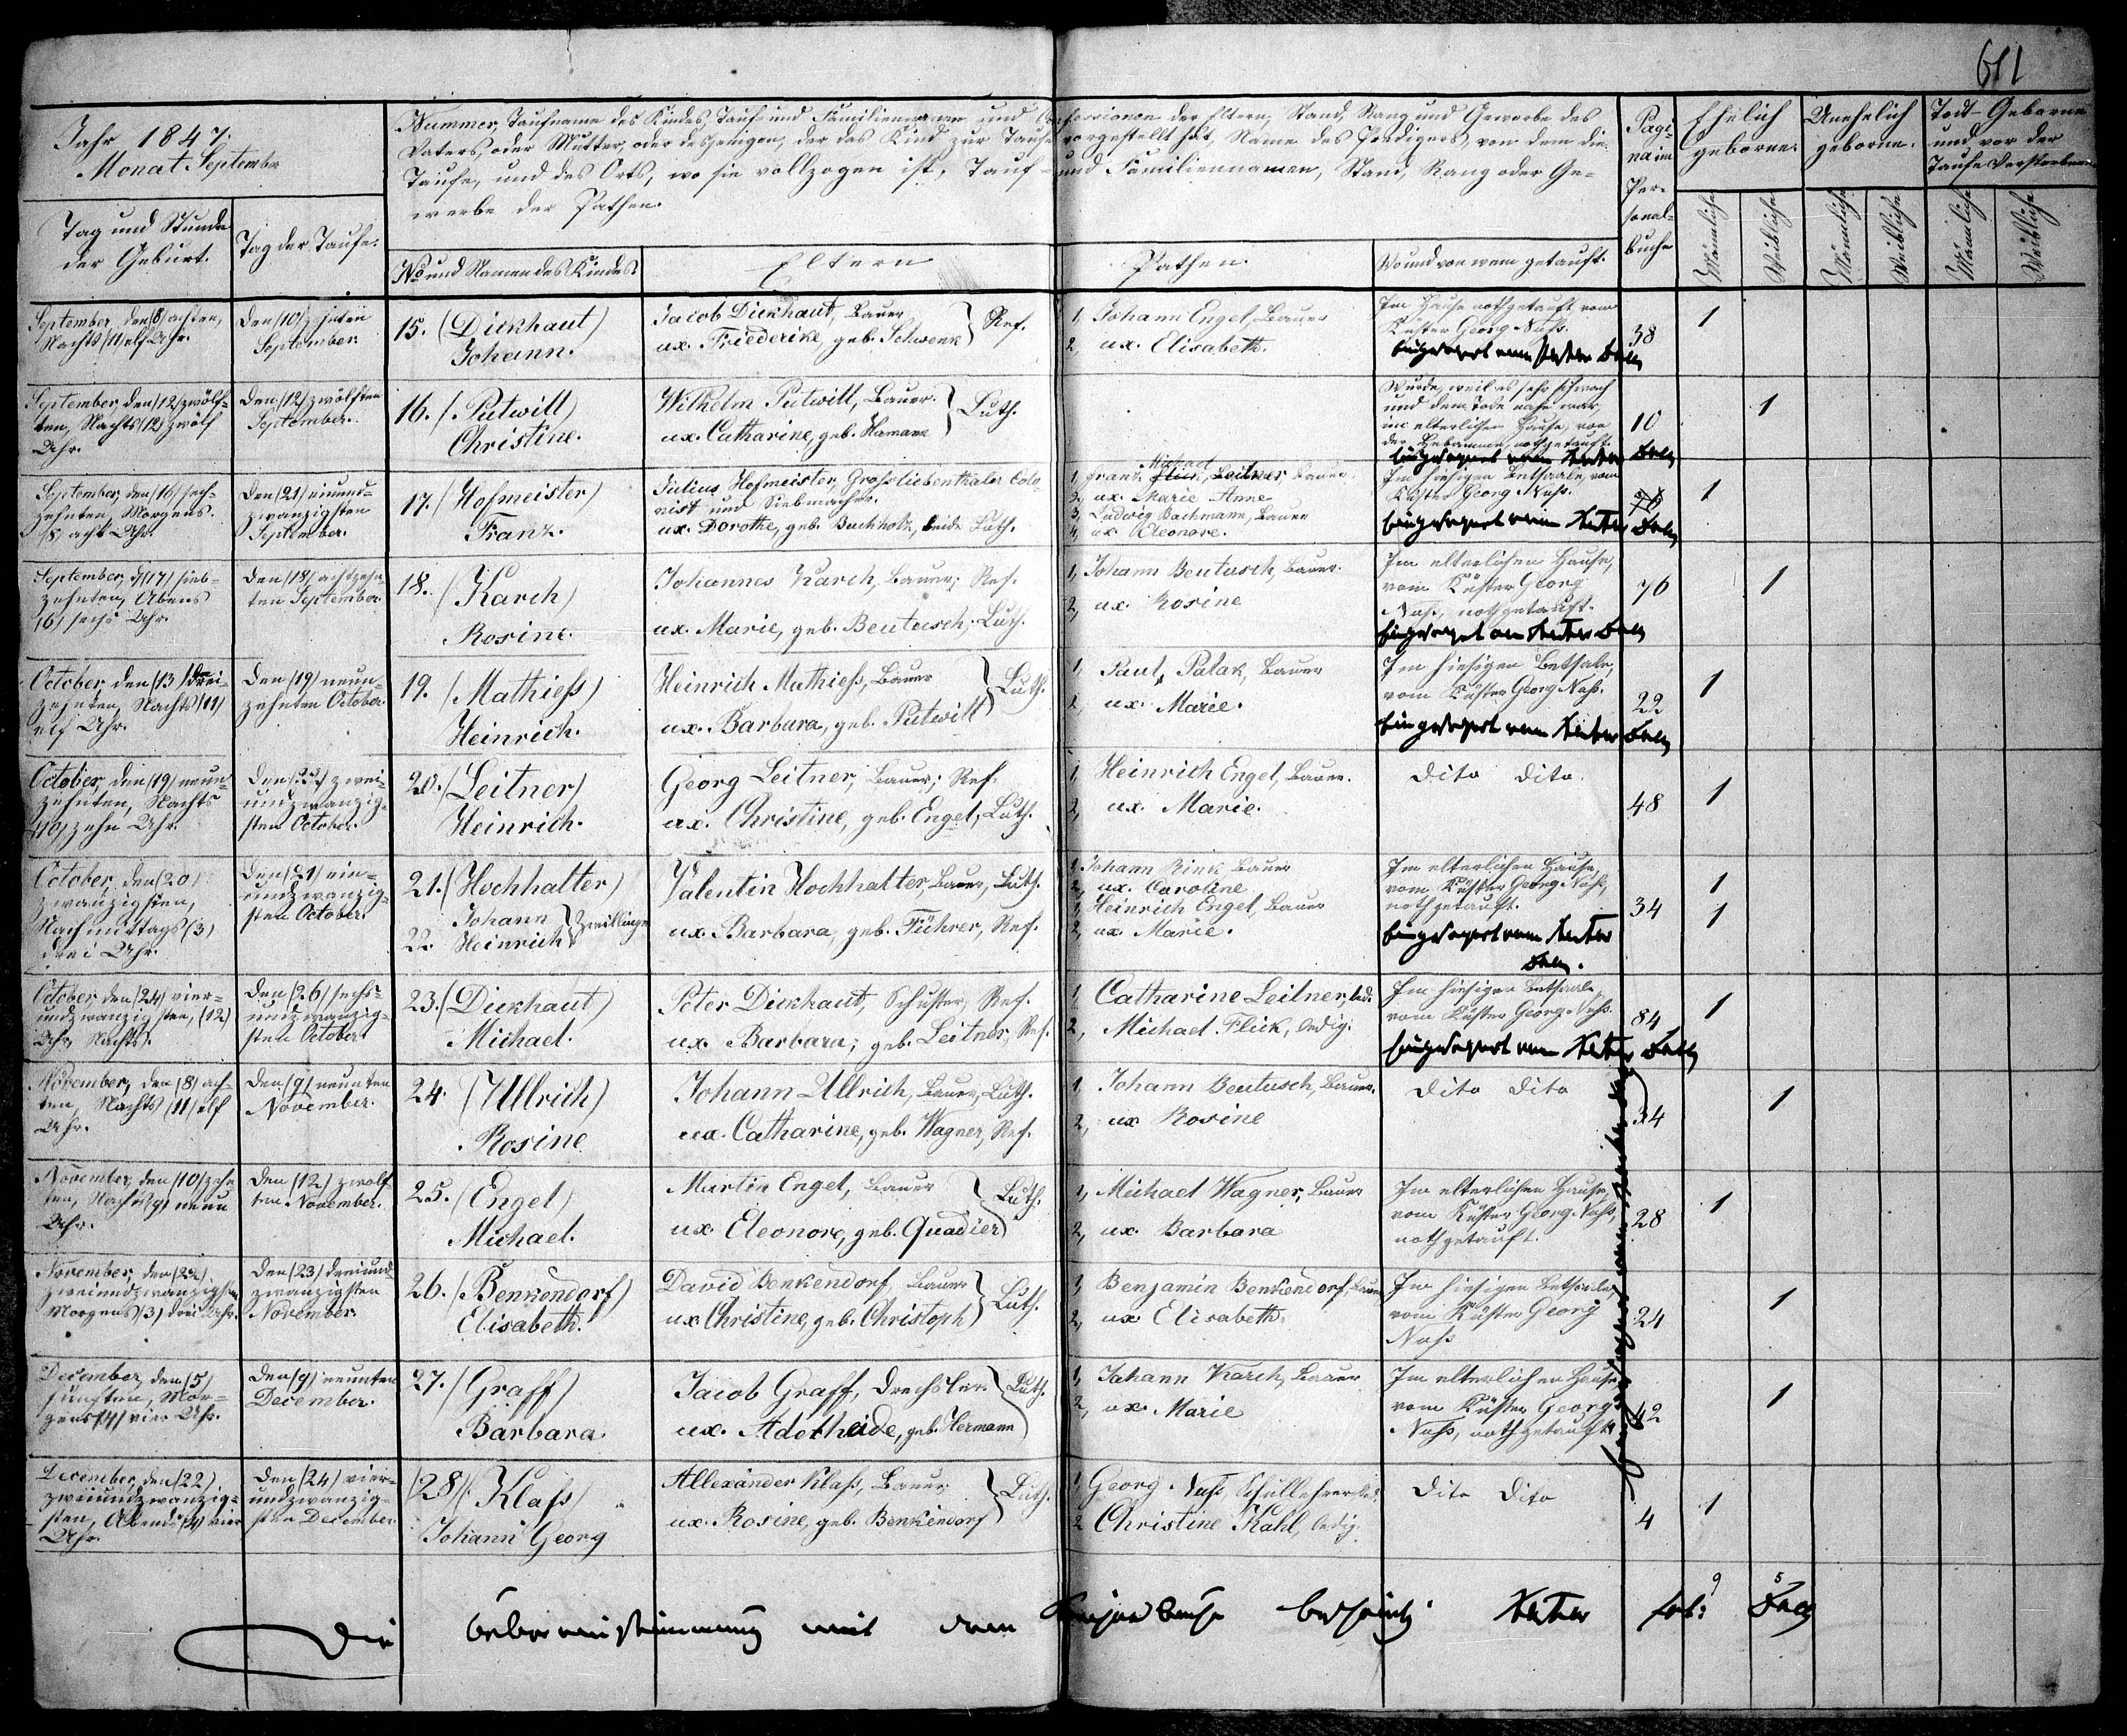 611
Jahr 1847.
Monat September
Nummer, Taufname des Kindes, Tauf- und Familiennamen und Confessionen der Eltern, Stand, Rang und Gewerbe des
Vaters, oder Mutter, oder desjenigen, der das Kind zur Taufe vorgestellt hat, Name des Predigers, von dem die
Taufe, und des Orts, wo sie vollzogen ist, Tauf- und Familiennamen, Stand, Rang oder Ge-
werbe der Pathen.
Pagi-
na im
Per-
sonal-
buche
Ehelich
geborne.
Unehelich
geborne.
Todt-Geborne
und vor der
Taufe Verstorbene
Tag und Stunde
der Geburt.
Tag der Taufe.
No und Namen des Kindes.
Eltern
Pathen
Wo und von wem getauft.
Männliche
Weibliche
Männliche
Weibliche
Männliche
Weibliche
September, den (8) achten,
Nachts (11) elf Uhr.
Den (10) zehnten
September.
15. (Dickhaut)
Johann.
Jacob Dickhaut, Bauer
ux. Friederike, geb. Schwenk } Ref.
1, Johann Engel, Bauer
2, ux. Elisabeth.
Im Hause nothgetauft vom
Küster Georg Nass.
38
1
September, den (12) zwölf-
ten, Nachts (12) zwölf
Uhr.
Den (12) zwölften
September.
16. (Putwill)
Christine.
Wilhelm Putwill, Bauer.
ux. Catharine, geb. Hamann } Luth.
Wurde, weil es sehr schwach
und dem Tode nahe war,
im elterlichen Hause, von
der Hebamme, nothgetauft.
10
1
September, den (16) sech-
zehnten, Morgens
(8) acht Uhr.
Den (21) einund-
zwanzigsten
September.
17. (Hofmeister)
Franz.
Julius Hofmeister, Grossliebenthaler Colo-
nist und Siebmacher.
ux. Dorothe, geb. Buchholz, beide Luth.
Michael
1, Franz Leitner, Bauer.
2, ux. Marie Anne
3, Ludwig Bachmann, Bauer
4, ux. Eleonore.
Im hiesigen Bethsaale, vom
Küster Georg Nass.
1
September, d. (17) sieb-
zehnten, Abens
(6) sechs Uhr.
Den (18) achtzehn-
ten September.
18. (Karch)
Rosine.
Johannes Karch, Bauer; Ref.
ux. Marie, geb. Beutusch; Luth.
1, Johann Beutusch, Bauer.
2, ux. Rosine
Im elterlichen Hause,
vom Küster Georg
Nass, nothgetauft.
76
1
October, den (13) drei-
zehnten, Nachts (11)
elf Uhr.
Den (19) neun-
zehnten October.
19. (Mathiess)
Heinrich.
Heinrich Mathiess, Bauer
ux. Barbara, geb. Putwill } Luth.
1, Paul Palak, Bauer
2, ux. Marie.
Im hiesigen Bethsale,
vom Küster Georg Nass.
22
1
October, den (19) neun-
zehnten, Nachts
(10) zehn Uhr.
Den (22) zwei-
undzwanzig-
sten October.
20. (Leitner)
Heinrich.
Georg Leitner, Bauer; Ref.
ux. Christine, geb. Engel, Luth.
1, Heinrich Engel, Bauer.
2, ux. Marie.
Dito Dito
48
1
October, den (20)
zwanzigsten,
Nachmittags (3)
drei Uhr.
Den (21) ein-
undzwanzig-
sten October.
21. (Hochhalter)
Johann
22 Heinrich } Zwillinge
Valentin Hochhalter, Bauer, Luth.
ux. Barbara, geb. Führer, Ref.
1, Johann Rink, Bauer
2, ux. Caroline
1, Heinrich Engel, Bauer
2, ux. Marie.
Im elterlichen Hause,
vom Küster Georg Nass,
nothgetauft.
34
1
1
October, den (24) vier-
undzwanzigsten, (12)
Uhr Nachts.
Den (26) sechs-
undzwanzig-
sten October.
23. (Dickhaut)
Michael.
Peter Dickhaut, Schuster, Ref.
ux. Barbara; geb. Leitner, Ref.
1, Catharine Leitner, led.
2, Michael Flick, ledig.
Im hiesigen Bethsaale,
vom Küster Georg Nass.
84
1
November, den (8) ach-
ten, Nachts (11) elf
Uhr.
Den (9) neunten
November.
24. (Ullrich)
Rosine
Johann Ullrich, Bauer, Luth.
ux. Catharine, geb. Wagner, Ref.
1, Johann Beutusch, Bauer.
2, ux Rosine
Dito Dito
34
1
November, den (10) zehn-
ten, Nachts (9) neun
Uhr.
Den (12) zwölf-
ten November.
25. (Engel)
Michael.
Martin Engel, Bauer
ux. Eleonore, geb. Quadier } Luth.
1, Michael Wagner, Bauer
2, ux. Barbara
Im elterlichen Hause,
vom Küster Georg Nass,
nothgetauft.
28
1
November, den (22)
zweiundzwanzigsten
Morgens (3) drei Uhr.
Den (23) dreiund-
zwanzigsten
November.
26. (Benkendorf)
Elisabeth.
David Benkendorf, Bauer
ux. Christine, geb. Christoph } Luth.
1, Benjamin Benkendorf, Bauer
2, ux Elisabeth.
Im hiesigen Bethsaale,
vom Küster Georg
Nass
24
1
December, den (5)
fünften, Mor-
gens (4) vier Uhr.
Den (9) neunten
December.
27. (Graff)
Barbara
Jacob Graff, Drechsler.
ux. Adelheide, geb. Hermann } Luth.
1, Johann Karch, Bauer
2, ux. Marie
Im elterlichen Hause,
vom Küster Georg
Nass, nothgetauft.
42
1
December, den (22)
zweiundzwanzig-
sten, Abends (4) vier
Uhr.
Den (24) vier-
undzwanzig-
sten December
(28) (Klass)
Johann Georg
Allexander Klass, Bauer
ux. Rosine, geb. Benkendorf } Luth.
1, Georg Nass, Schullehrer
2 Christine Kahl, ledig.
Dito Dito
4
1
9 5
Die Uebereinstimmung mit dem Kirchenbuche bescheinigt